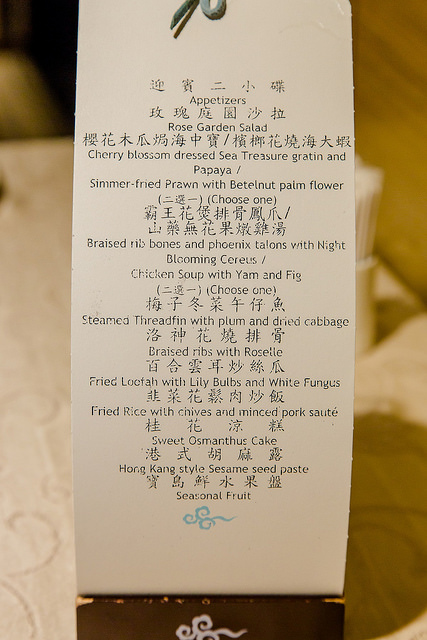 迎賓二小碟
Appetizers
玫瑰庭園沙拉
Rose Garden Salad
櫻花木瓜焗海中寶/檳榔花燒海大蝦
Cherry blossom dressed Sea Treasure gratin and
Papaya /
Simmer-fried Prawn with Betelnut palm flower
(二選一) (Choose one)
霸王花煲排骨鳳爪/
山藥無花果燉雞湯
Braised rib bones and phoenix talons with Night
Blooming Cereus /
Chicken Soup with Yam and Fig
(二選一) (Choose one)
梅子冬菜午仔魚
Steamed Threadfin with plum and dried cabbage
洛神花燒排骨
Braised ribs with Roselle
百合雲耳炒絲瓜
Fried Loofah with Lily Bulbs and White Fungus
韭菜花鬆肉炒飯
Fried Rice with chives and minced pork sauté
桂花涼糕
Sweet Osmanthus Cake
港式胡麻露
Hong Kang style Sesame seed paste
寶島鮮水果盤
Seasonal Fruit